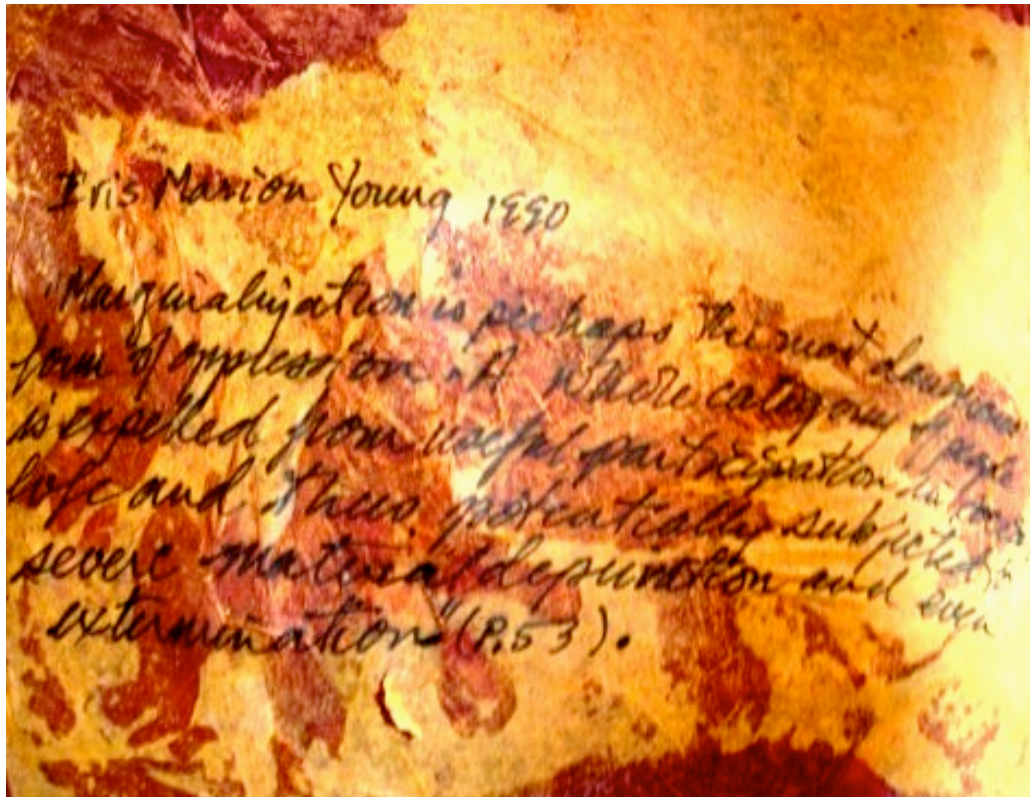 Iris Marion Young 1990
"Marginalization is perhaps the most dangerous
form of oppression. A whole category of people
is expelled from useful participation in social
life and thus potentially subjected to
severe material deprivation and even
extermination" (P.53).